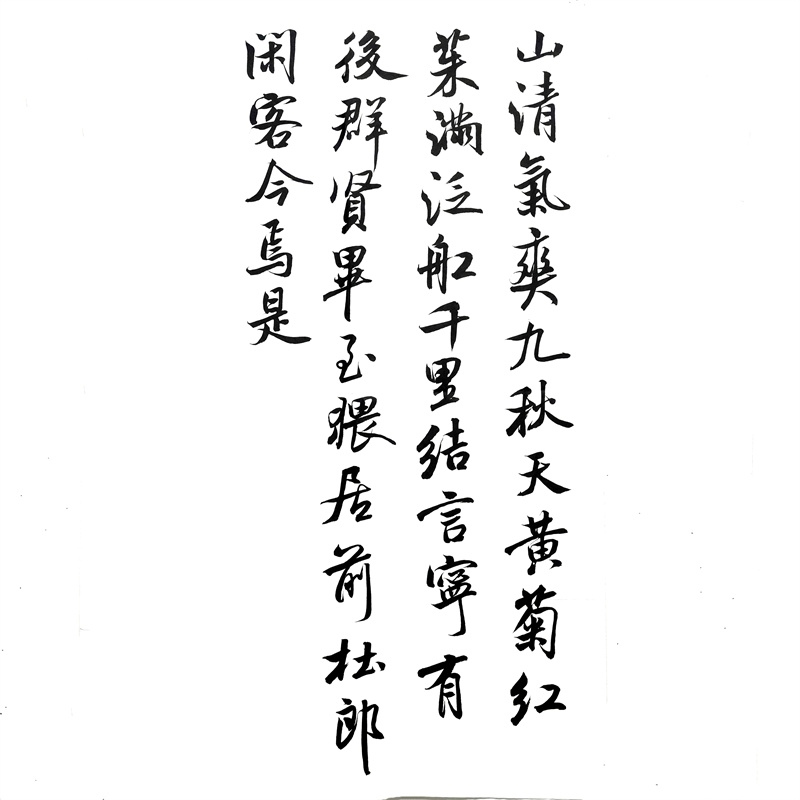 山清氣爽九秋天黄菊红
茱滿泛船千里结言寧有
後群贤畢至猥居前杜郎
閑客今焉是